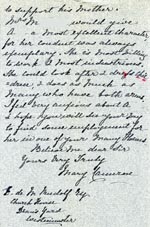 to support his Mother.
Mrs M would give
A a most excellent character
for her conduct was always
exemplary. She is most willing
to work & most industrious.
She could look after a
& do as much as
many who have both arms.
I feel very anxious about A
& hope you will see your way
to find some employment for
her in one of your many Homes
Believe me dear Sir
Yours very Truly
Mary Cameron
E. de M. Rudolf Esq.
Church House
Dean's Yard
Westminster